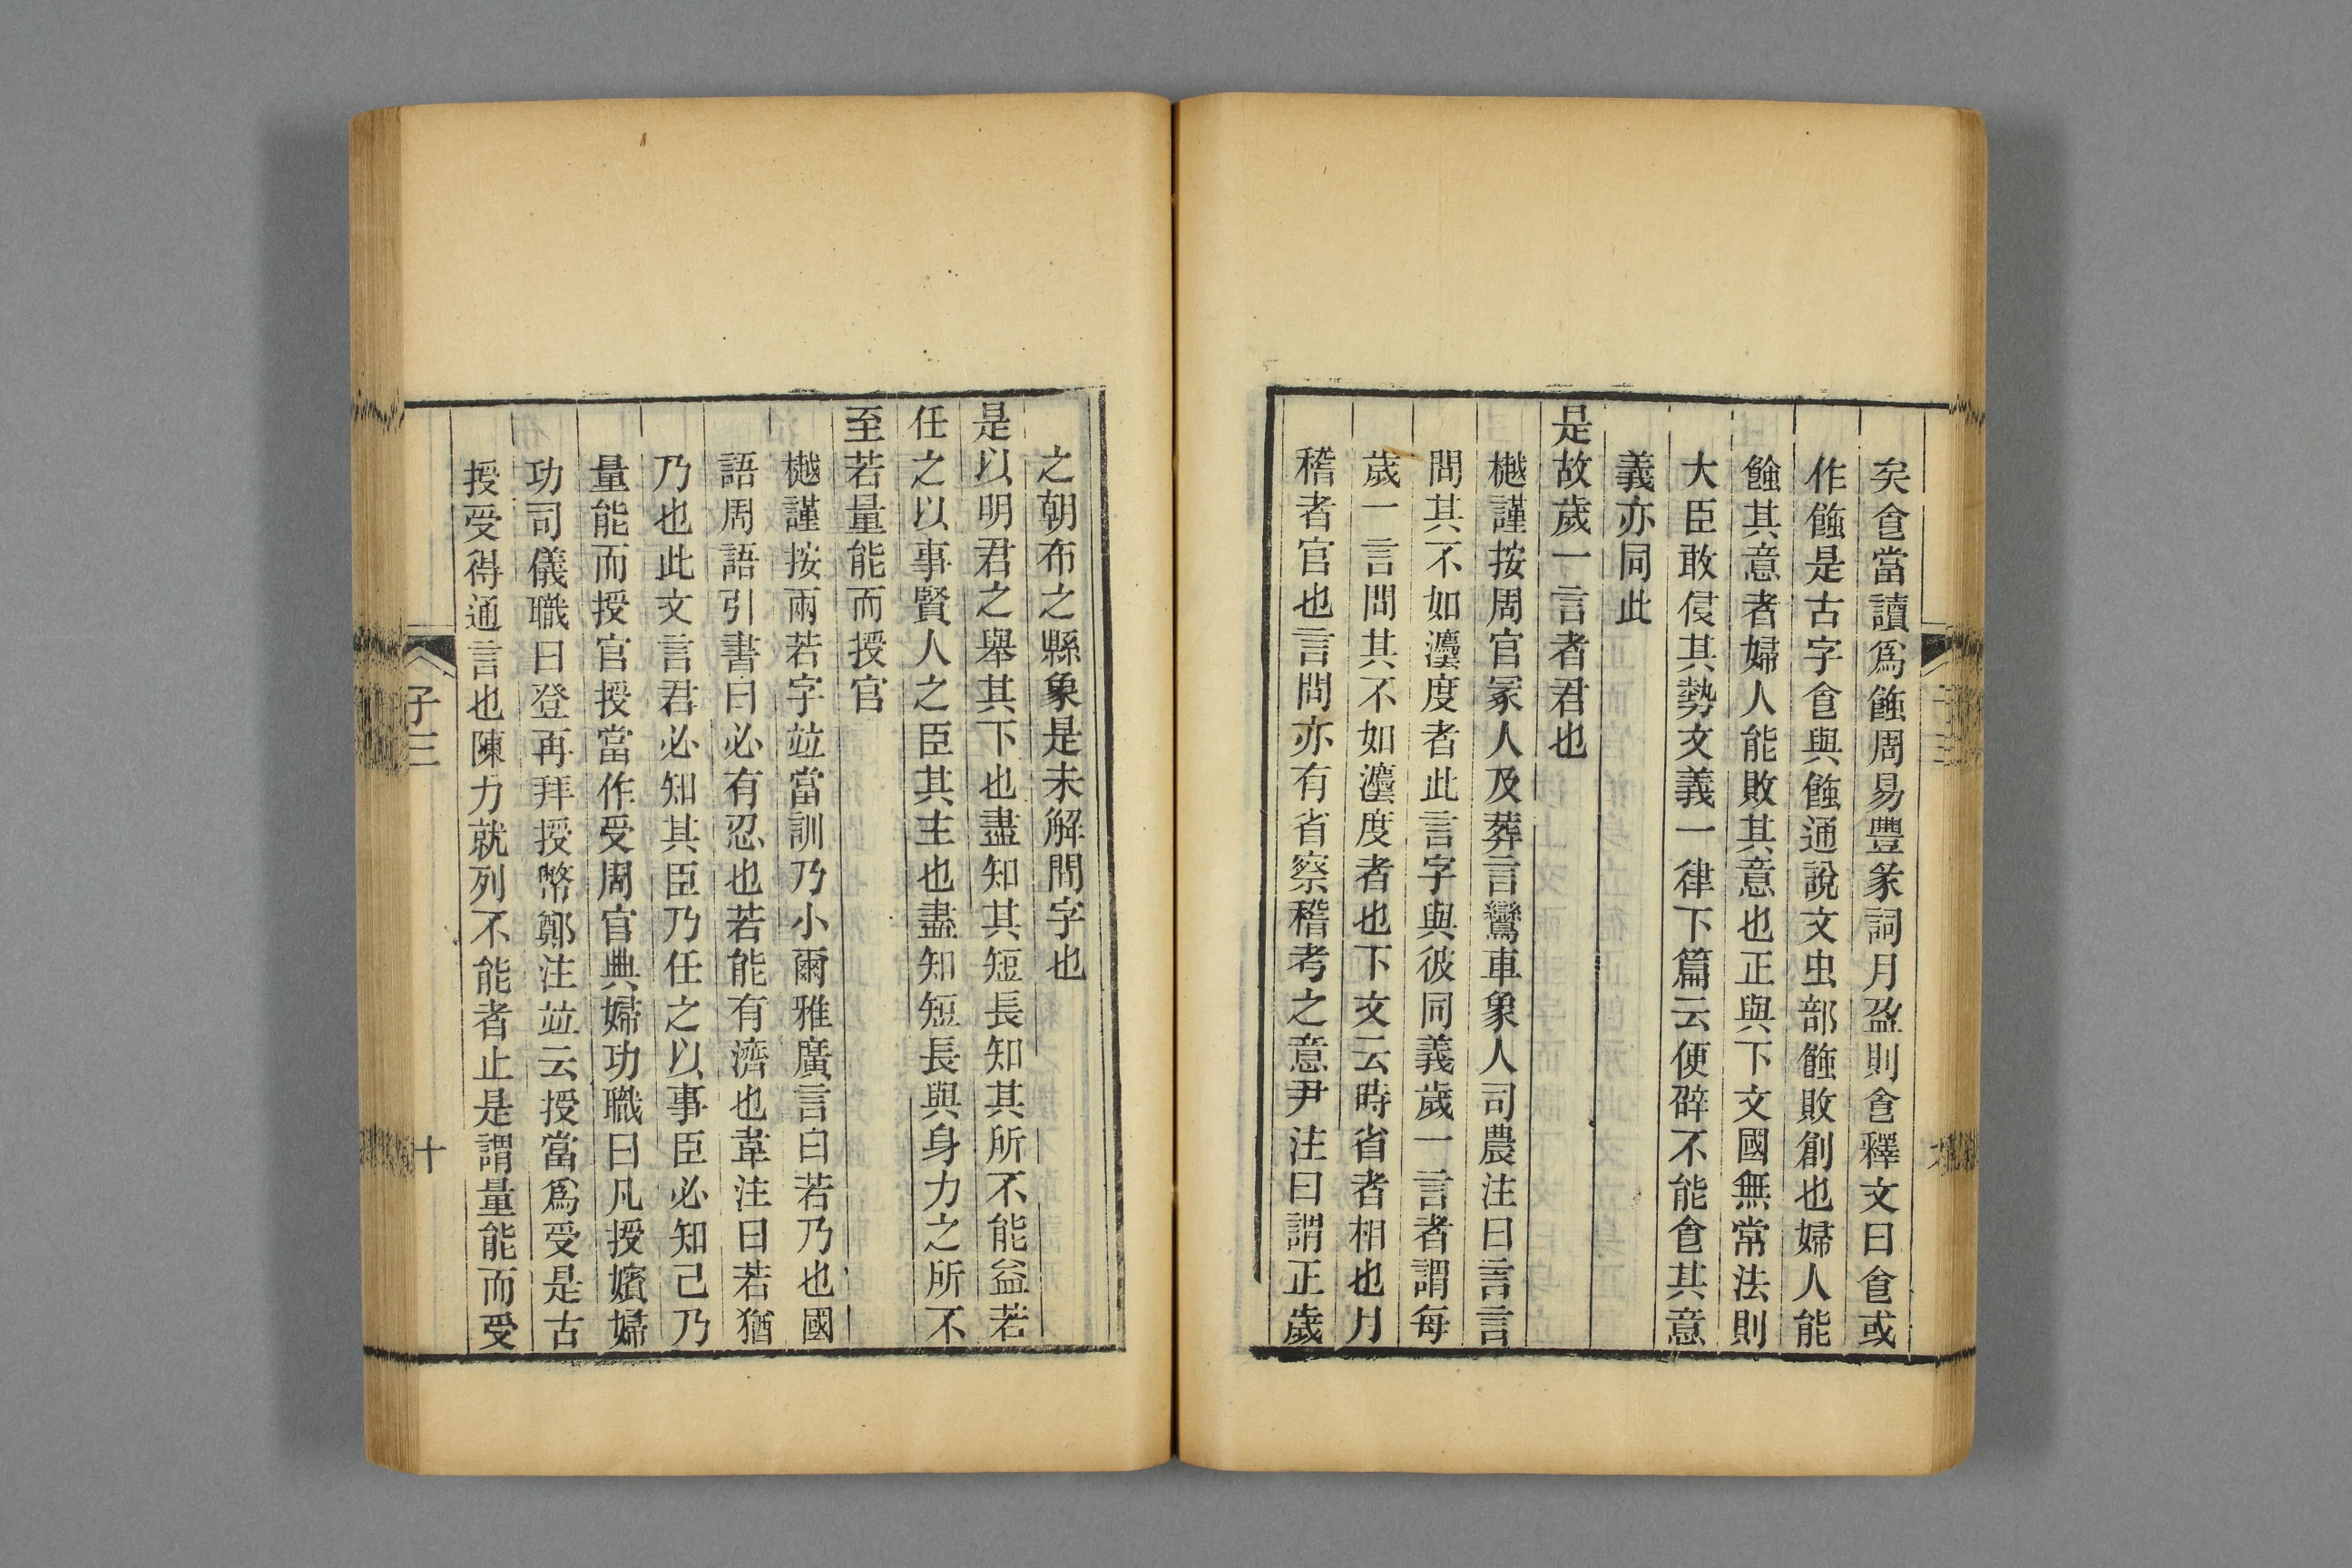 矣食當讀爲蝕周易豐彖詞月盈則食釋文曰食或
作蝕是古字食與蝕通說文虫部蝕敗創也婦人能
蝕其意者婦人能敗其意也正與下文國無常法則
大臣敢侵其勢文義一律下篇云便辟不能食其意
義亦同此
是故歲一言者君也
樾謹按周官冢人及葬言鸞車象人司農注曰言言
問其不如灋度者此言字與彼同義歲一言者謂每
歲一言問其不如灋度者也下文云時省者相也月
稽者官也言問亦有省察稽考之意尹注曰謂正歲
之朝布之縣象是未解問字也
是以明君之舉其下也盡知其短長知其所不能益若
任之以事賢人之臣其主也盡知短長與身力之所不
至若量能而授官
樾謹按兩若字竝當訓乃小爾雅廣言曰若乃也國
語周語引書曰必有忍也若能有濟也韋注曰若猶
乃也此文言君必知其臣乃任之以事臣必知己乃
量能而授官授當作受周官典婦功職曰凡授嬪婦
功司儀職曰登再拜授幣鄭注竝云授當爲受是古
授受得通言也陳力就列不能者止是謂量能而受
子三
十